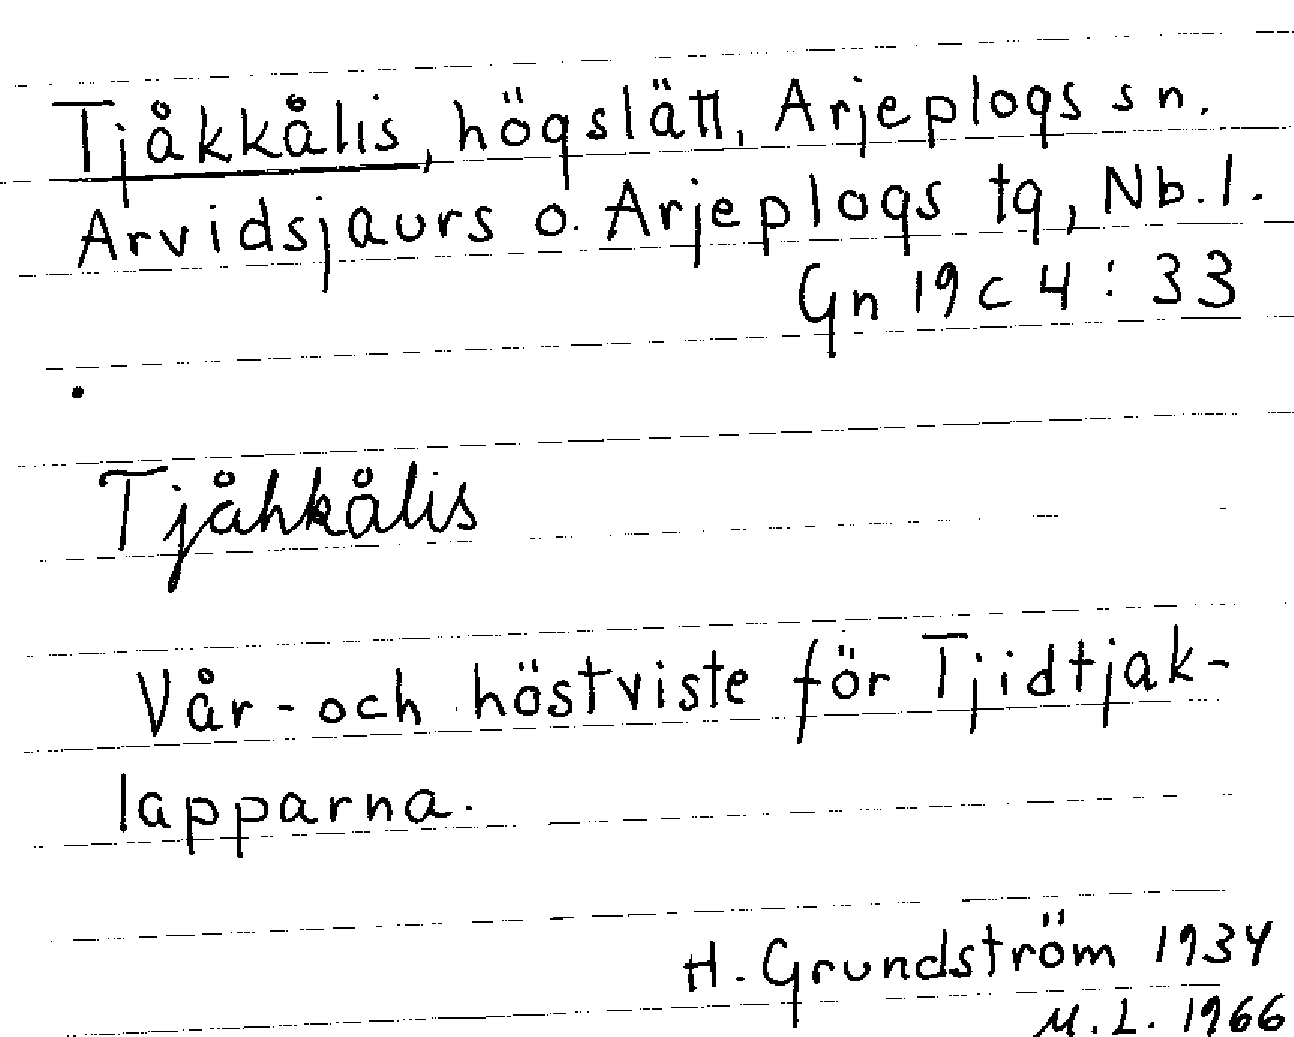 Tjåkkålis, högslätt, Arjeplogs sn.
Arvidsjaurs o. Arjeplogs tg, Nb. l.
Gn 19 c 4 : 33
Tjåhkålis
Vår- och höstviste för Tjidtjak-
lapparna.
H. Grundström 1934
M. L. 1966